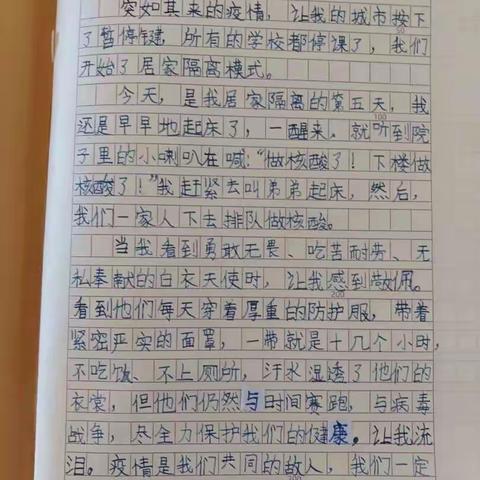 突如其来的疫情，让我的城市按下
了暂停键，所有的学校都停课了，我们
开始了居家隔离模式。
今天，是我居家隔离的第五天，我
还是早早地起床了，一醒来，就听到院
子里的小喇叭在喊："做核酸了！下楼做
核酸了！"我赶紧去叫弟弟起床，然后，
我们一家人下去排队做核酸。
当我看到勇敢无畏、吃苦耐劳、无
私奉献的白衣天使时，让我感到敬佩。
看到他们每天穿着厚重的防护服，带着
紧密严实的面罩，一带就是十几个小时，
不吃饭、不上厕所，汗水湿透了他们的
衣裳，但他们仍然与时间赛跑，与病毒
战争，尽全力保护我们的健康。让我流
泪。疫情是我们共同的敌人，我们一定